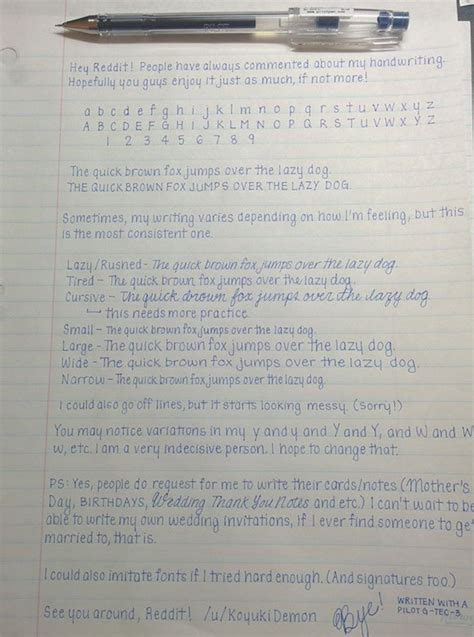 Hey Reddit! People have always commented about my handwriting.
Hopefully you guys enjoy it just as much, if not more!
a b c d e f g h i j k l m n o p q r s t u v w x y z
A B C D E F G H I J K L M N O P Q R S T U V W X Y Z
1 2 3 4 5 6 7 8 9
The quick brown fox jumps over the lazy dog.
THE QUICK BROWN FOX JUMPS OVER THE LAZY DOG.
Sometimes, my writing varies depending on how I'm feeling, but this
is the most consistent one.
Lazy/Rushed - The quick brown fox jumps over the lazy dog.
Tired - The quick brown fox jumps over the lazy dog.
Cursive - The quick brown fox jumps over the lazy dog.
this needs more practice
Small - The quick brown fox jumps over the lazy dog.
Large - The quick brown fox jumps over the lazy dog.
Wide - The quick brown fox jumps over the lazy dog.
Narrow - The quick brown fox jumps over the lazy dog.
I could also go off lines, but it starts looking messy. (Sorry!)
You may notice variations in my y and y and Y and Y, and W and W
w, etc. I am a very indecisive person. I hope to change that.
PS: Yes, people do request for me to write their cards/notes (Mother's
Day, BIRTHDAYS, Wedding Thank You Notes and etc.) I can't wait to be
able to write my own wedding invitations, if I ever find someone to get
married to, that is.
I could also imitate fonts if I tried hard enough. (And signatures too.)
See you around, Reddit! /u/KoyukiDemon
Bye!
WRITTEN WITH A
PILOT G-TEC-3.